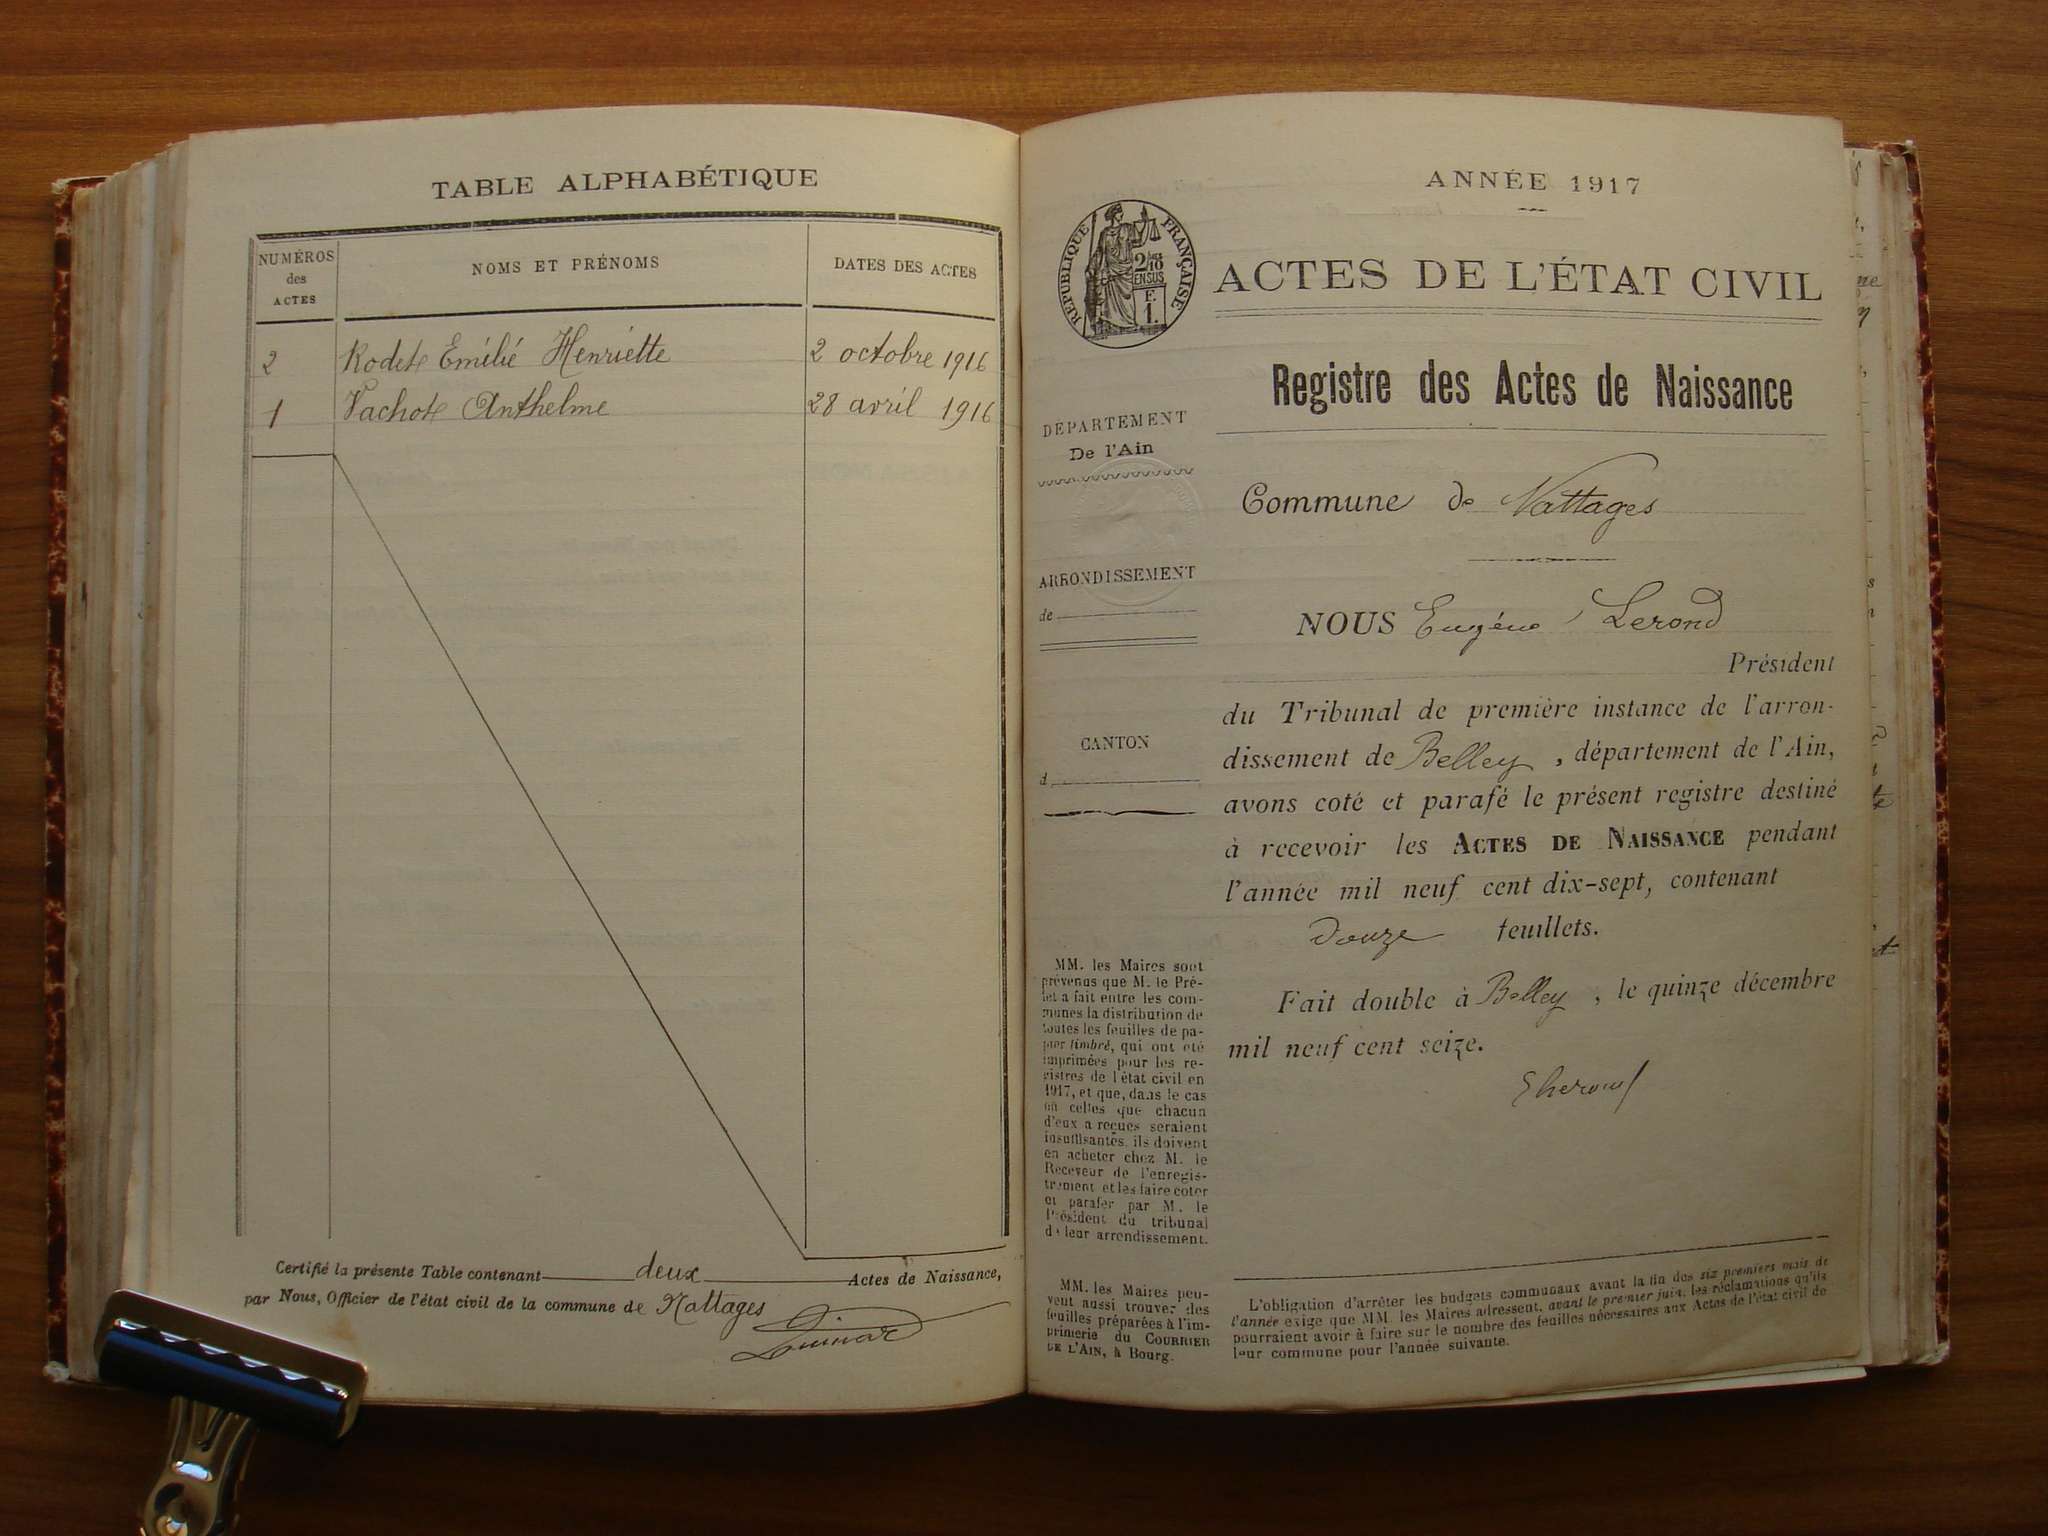 TABLE ALPHABÉTIQUE
NUMÉROS
des
ACTES
NOMS ET PRÉNOMS
DATES DES ACTES
2 Rodet Emilié Henriette 2 octobre 1916
1 Vachot Anthelme 28 avril 1916
Certifié la présente Table contenant deux Actes de Naissance,
par Nous, Officier de l'état civil de la commune de Nattages
ANNÉE 1917
RÉPUBLIQUE FRANÇAISE
2/10
EN SUS
F.
1.
ACTES DE L'ÉTAT CIVIL
Registre des Actes de Naissance
DÉPARTEMENT
De l'Ain
ARRONDISSEMENT
de
CANTON
d
MM. les Maires sont
prévenus que M. le Pré-
fet a fait entre les com-
munes la distribution de
toutes les feuilles de pa-
pier timbré, qui ont été
imprimées pour les re-
gistres de l'état civil en
1917, et que, dans le cas
où celles que chacun
d'eux a reçues seraient
insuffisantes, ils doivent
en acheter chez M. le
Receveur de l'enregis-
trement et les faire coter
et parafer par M. le
Président du tribunal
de leur arrondissement.
MM. les Maires peu-
vent aussi trouver des
feuilles préparées à l'im-
primerie du COURRIER
DE L'AIN, à Bourg.
Commune de Nattages
NOUS Eugéne Lerond
Président
du Tribunal de première instance de l'arron-
dissement de Belley, département de l'Ain,
avons coté et parafé le présent registre destiné
à recevoir les ACTES DE NAISSANCE pendant
l'année mil neuf cent dix-sept, contenant
Douze feuillets.
Fait double à Belley, le quinze décembre
mil neuf cent seize.
L'obligation d'arrêter les budgets communaux avant la fin des six premiers mois de
l'année exige que MM. les Maires adressent, avant le premier juin, les réclamations qu'ils
pourraient avoir à faire sur le nombre des feuilles nécessaires aux Actes de l'état civil de
leur commune pour l'année suivante.